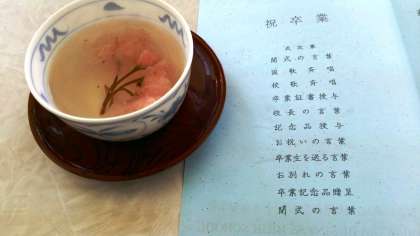 祝卒業
式次第
開式の言葉
国歌斉唱
校歌斉唱
卒業証書授与
校長の言葉
記念品授与
お祝いの言葉
卒業生を送る言葉
お別れの言葉
卒業記念品贈呈
閉式の言葉